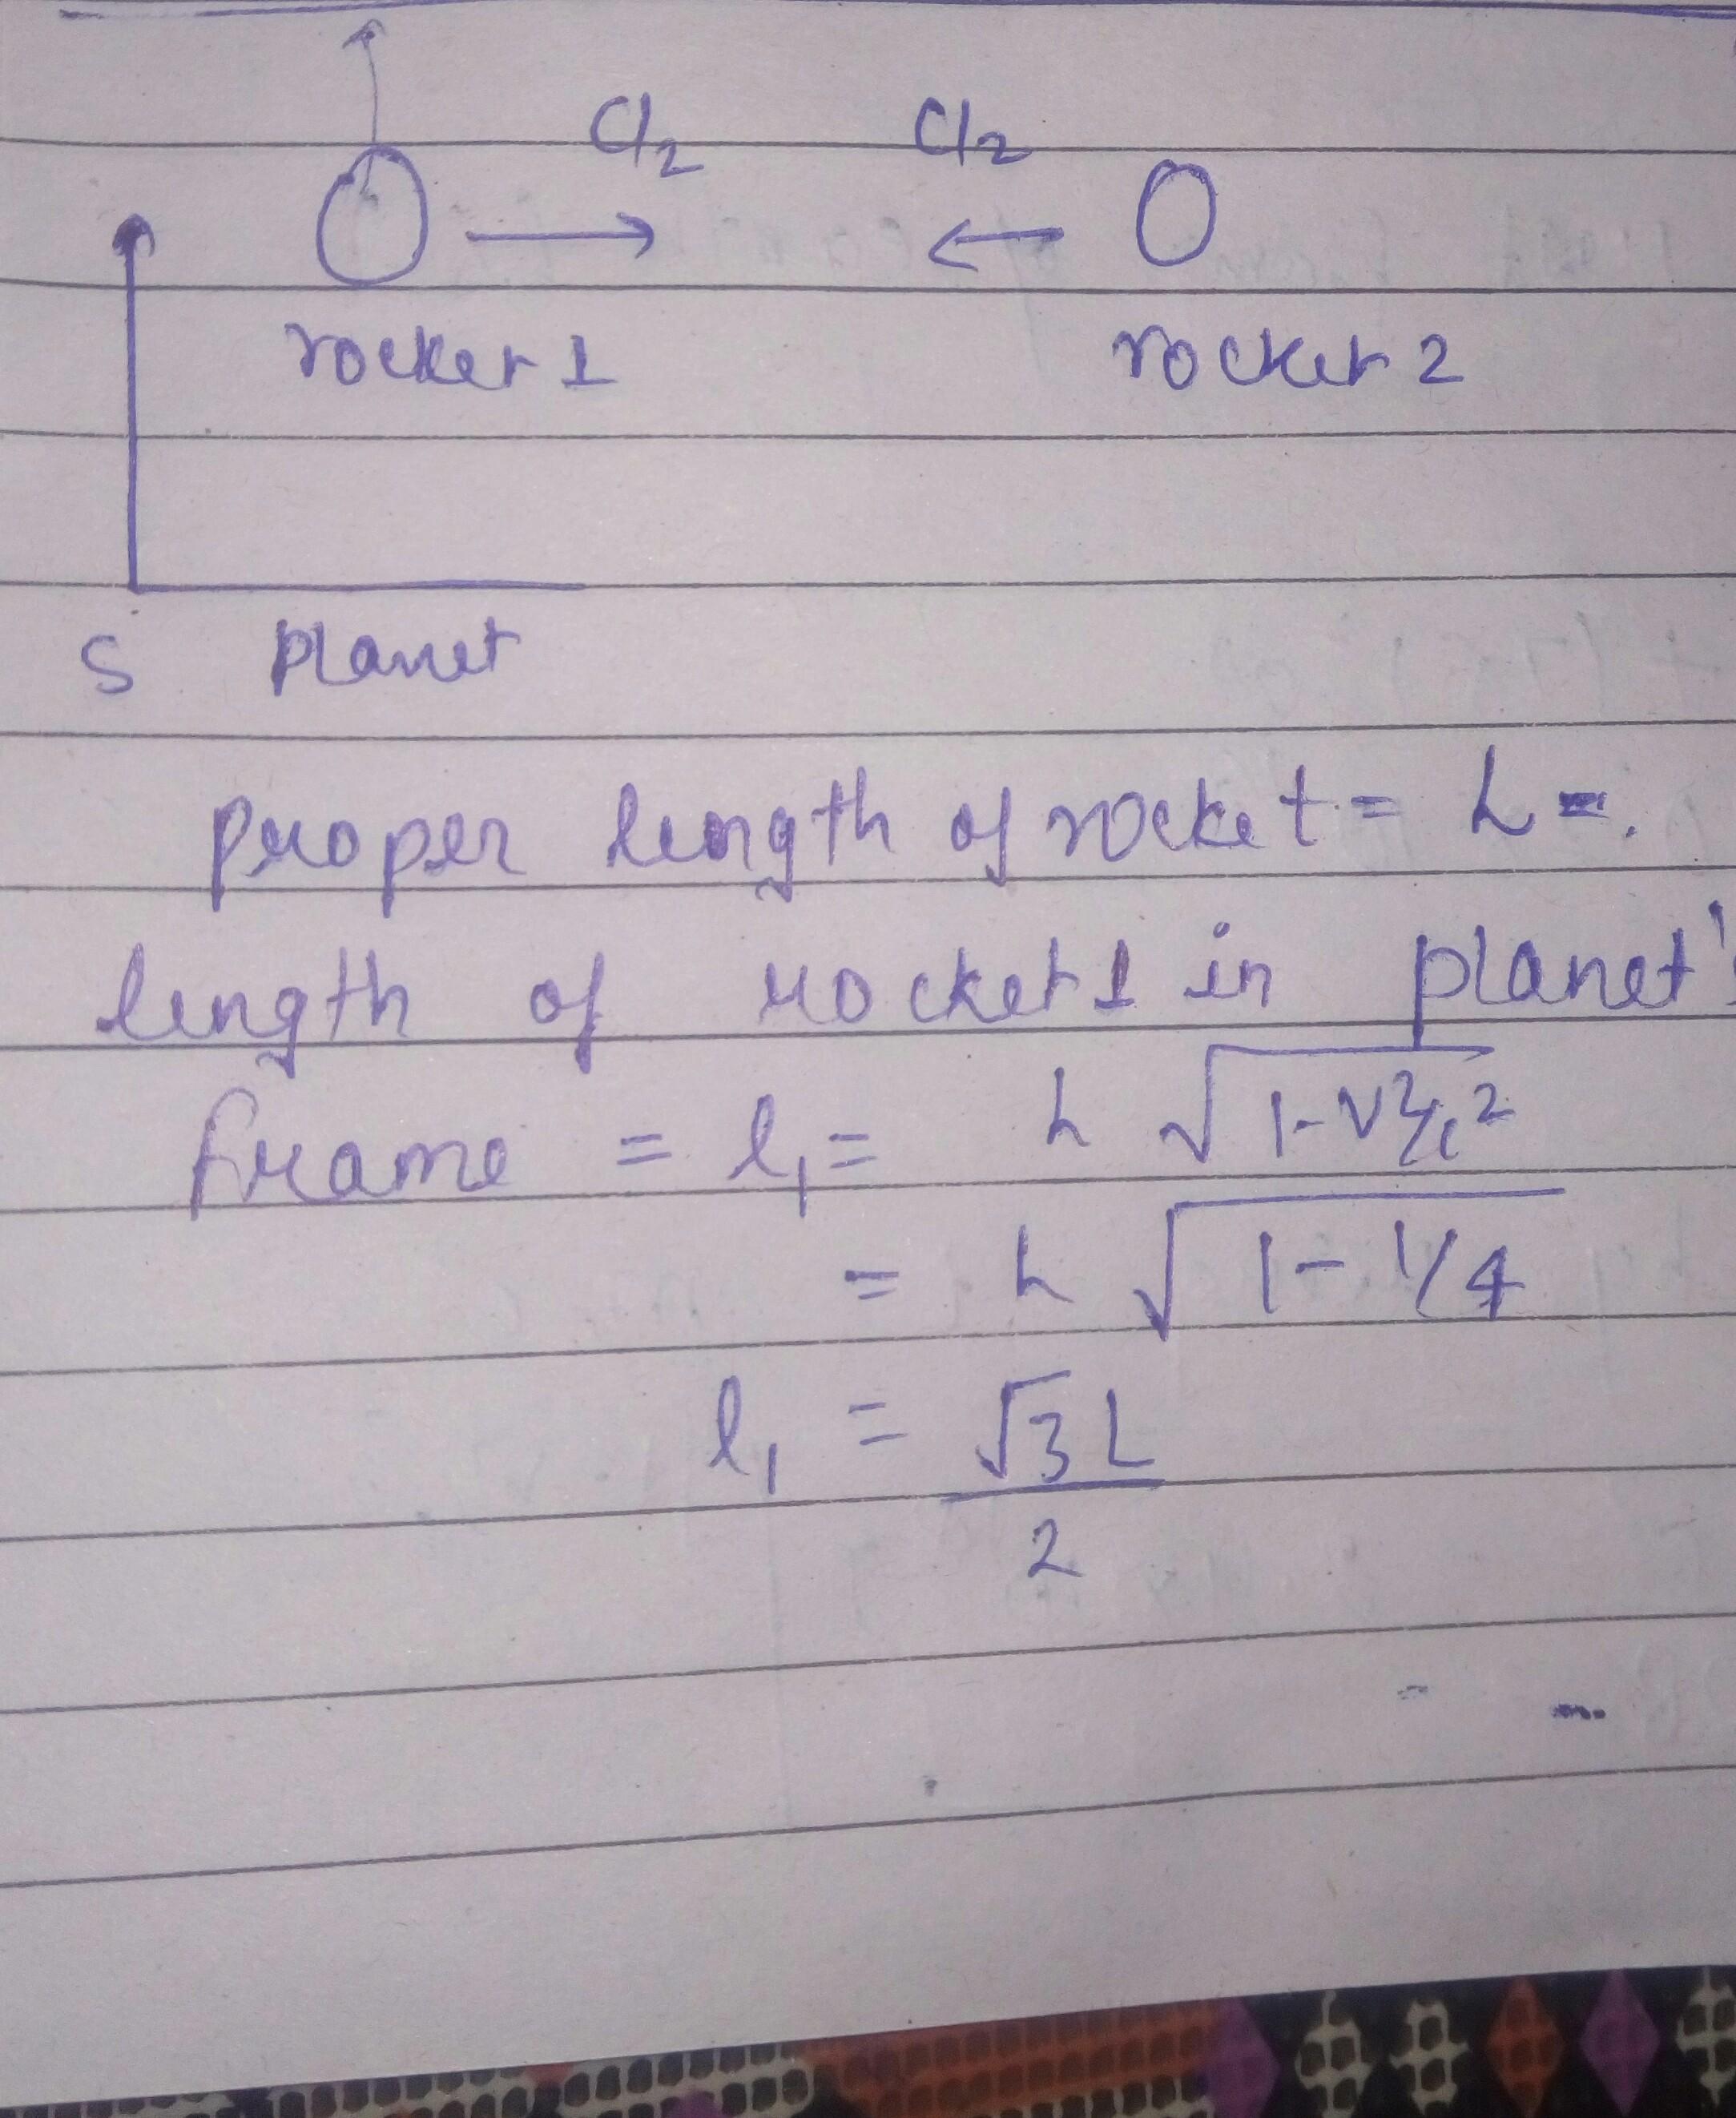 C/2 C/2
rocket 1 rocket 2
S Planet
proper length of rocket = L =.
length of rocket 1 in planet's
frame = l₁ = L √1-v²/c²
= L √1-1/4
l₁ = √3 L
2